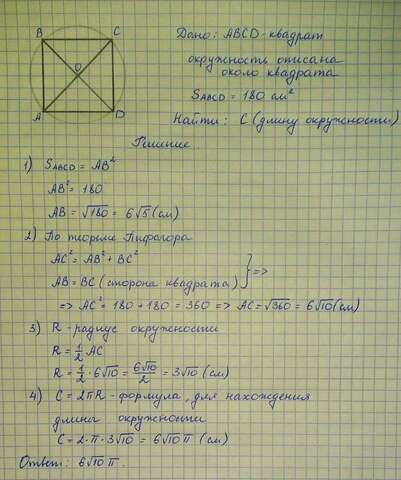 B C
O
A D
Дано: ABCD - квадрат
окружность описана
около квадрата
S ABCD = 180 см²
Найти: C (длину окружности)
Решение
1) S ABCD = AB²
AB² = 180
AB = √180 = 6√5 (см)
2) По теореме Пифагора
AC² = AB² + BC²
AB = BC (сторона квадрата) } =>
=> AC² = 180 + 180 = 360 => AC = √360 = 6√10 (см)
3) R - радиус окружности
R = 1/2 AC
R = 1/2 · 6√10 = 6√10/2 = 3√10 (см)
4) C = 2πR - формула, для нахождения
длины окружности
C = 2·π·3√10 = 6√10 π (см)
Ответ: 6√10 π.